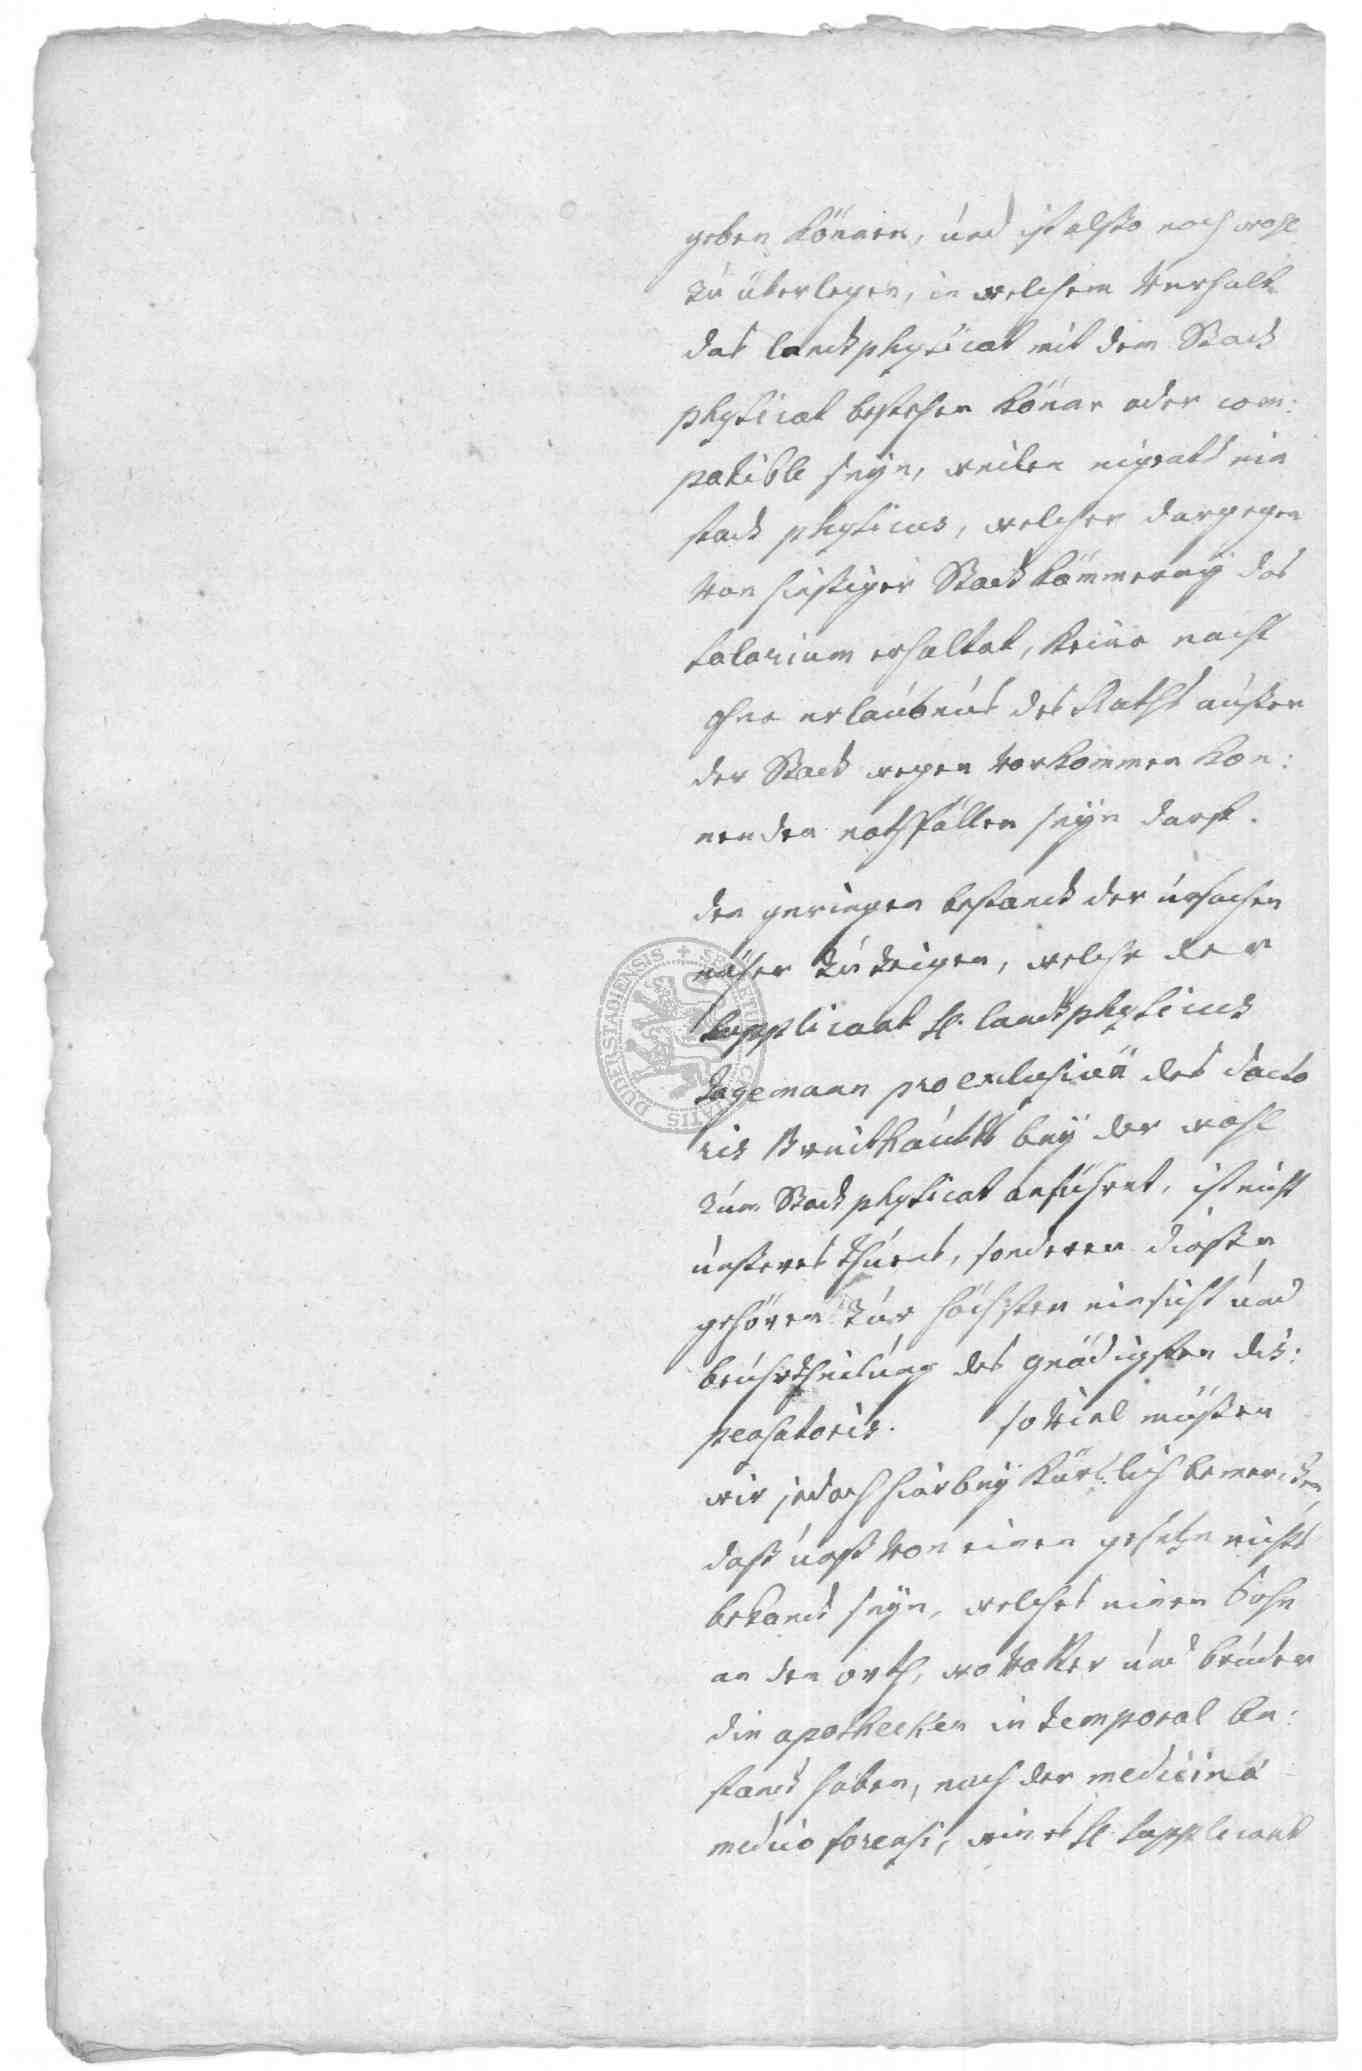 geben können, und ist alßo noch wohl
zu überlegen, in welchem Verhalt
das landphysicat mit dem Stadt
physicat bestehen könne oder com:
patible seye, weilen ein
stadt physicus, welcher dargegen
von hießiger Stadt Kämmerey das
salarium erhaltet, keine nacht
ohne erlaubnus des Raths außer
der Stadt wegen vorkommen kön:
nenden nothfällen seyn darf.
den geringen bestandt der ursachen
näher zu zeigen, welche der
supplicant H. landphysicus
Hagemann pro exclusiva des docto
ris Breithaubts bey der wahl
zum Stadt physicat anführet, ist nicht
unßeres thuens, sonderen dießen
gehören zur höchsten einsicht und
beuhrtheilung des gnädigsten dis:
pensatoris. so viel müßen
wir jedoch hierbey kürtzlich bemercken,
daß unß von einen gesetze nichts
bekandt seye, welches einen Sohn
an den orth, wo vatter und bruder
die apothecken in temporal be:
standt haben, nach der medicina
medico forensi, eines H. supplicant
DUDERSTADIENSIS